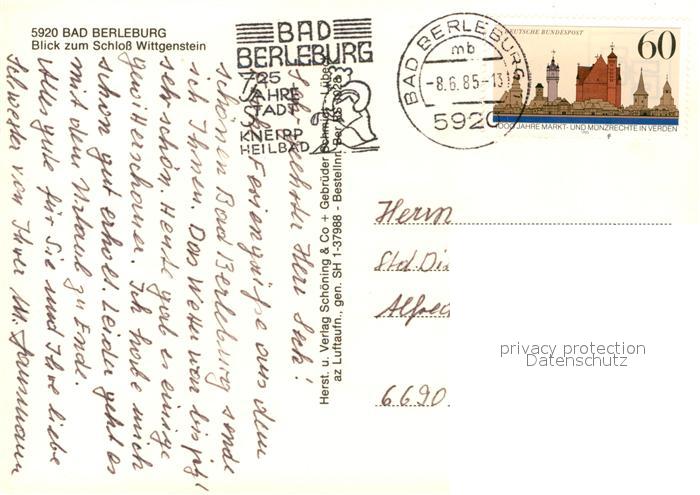 5920 BAD BERLEBURG
Blick zum Schloß Wittgenstein
BAD
BERLEBURG
725
JAHRE
STADT
KNEIPP
HEILBAD
BAD BERLEBURG
mb
-8.6.85-13
5920
DEUTSCHE BUNDESPOST
60
1000 JAHRE MARKT- UND MÜNZRECHTE IN VERDEN
Sehr geehrter Herr
Feriengrüße aus dem
schönen Bad Berleburg sende
ich Ihnen. Das Wetter war bis jetzt
sehr schön. Heute gab es einige
Gewitterschauer. Ich habe mich
schon gut erholt. Leider geht es
mit dem Urlaub zu Ende.
Alles gute für Sie und Ihre liebe
Schwester von Ihrer M.
Herst. u. Verlag Schöning & Co + Gebrüder Schmidt
az Luftaufn., gen. SH 1-37988 - Bestellnr.
Herrn
Std. Di
Alfred
6690
privacy protection
Datenschutz